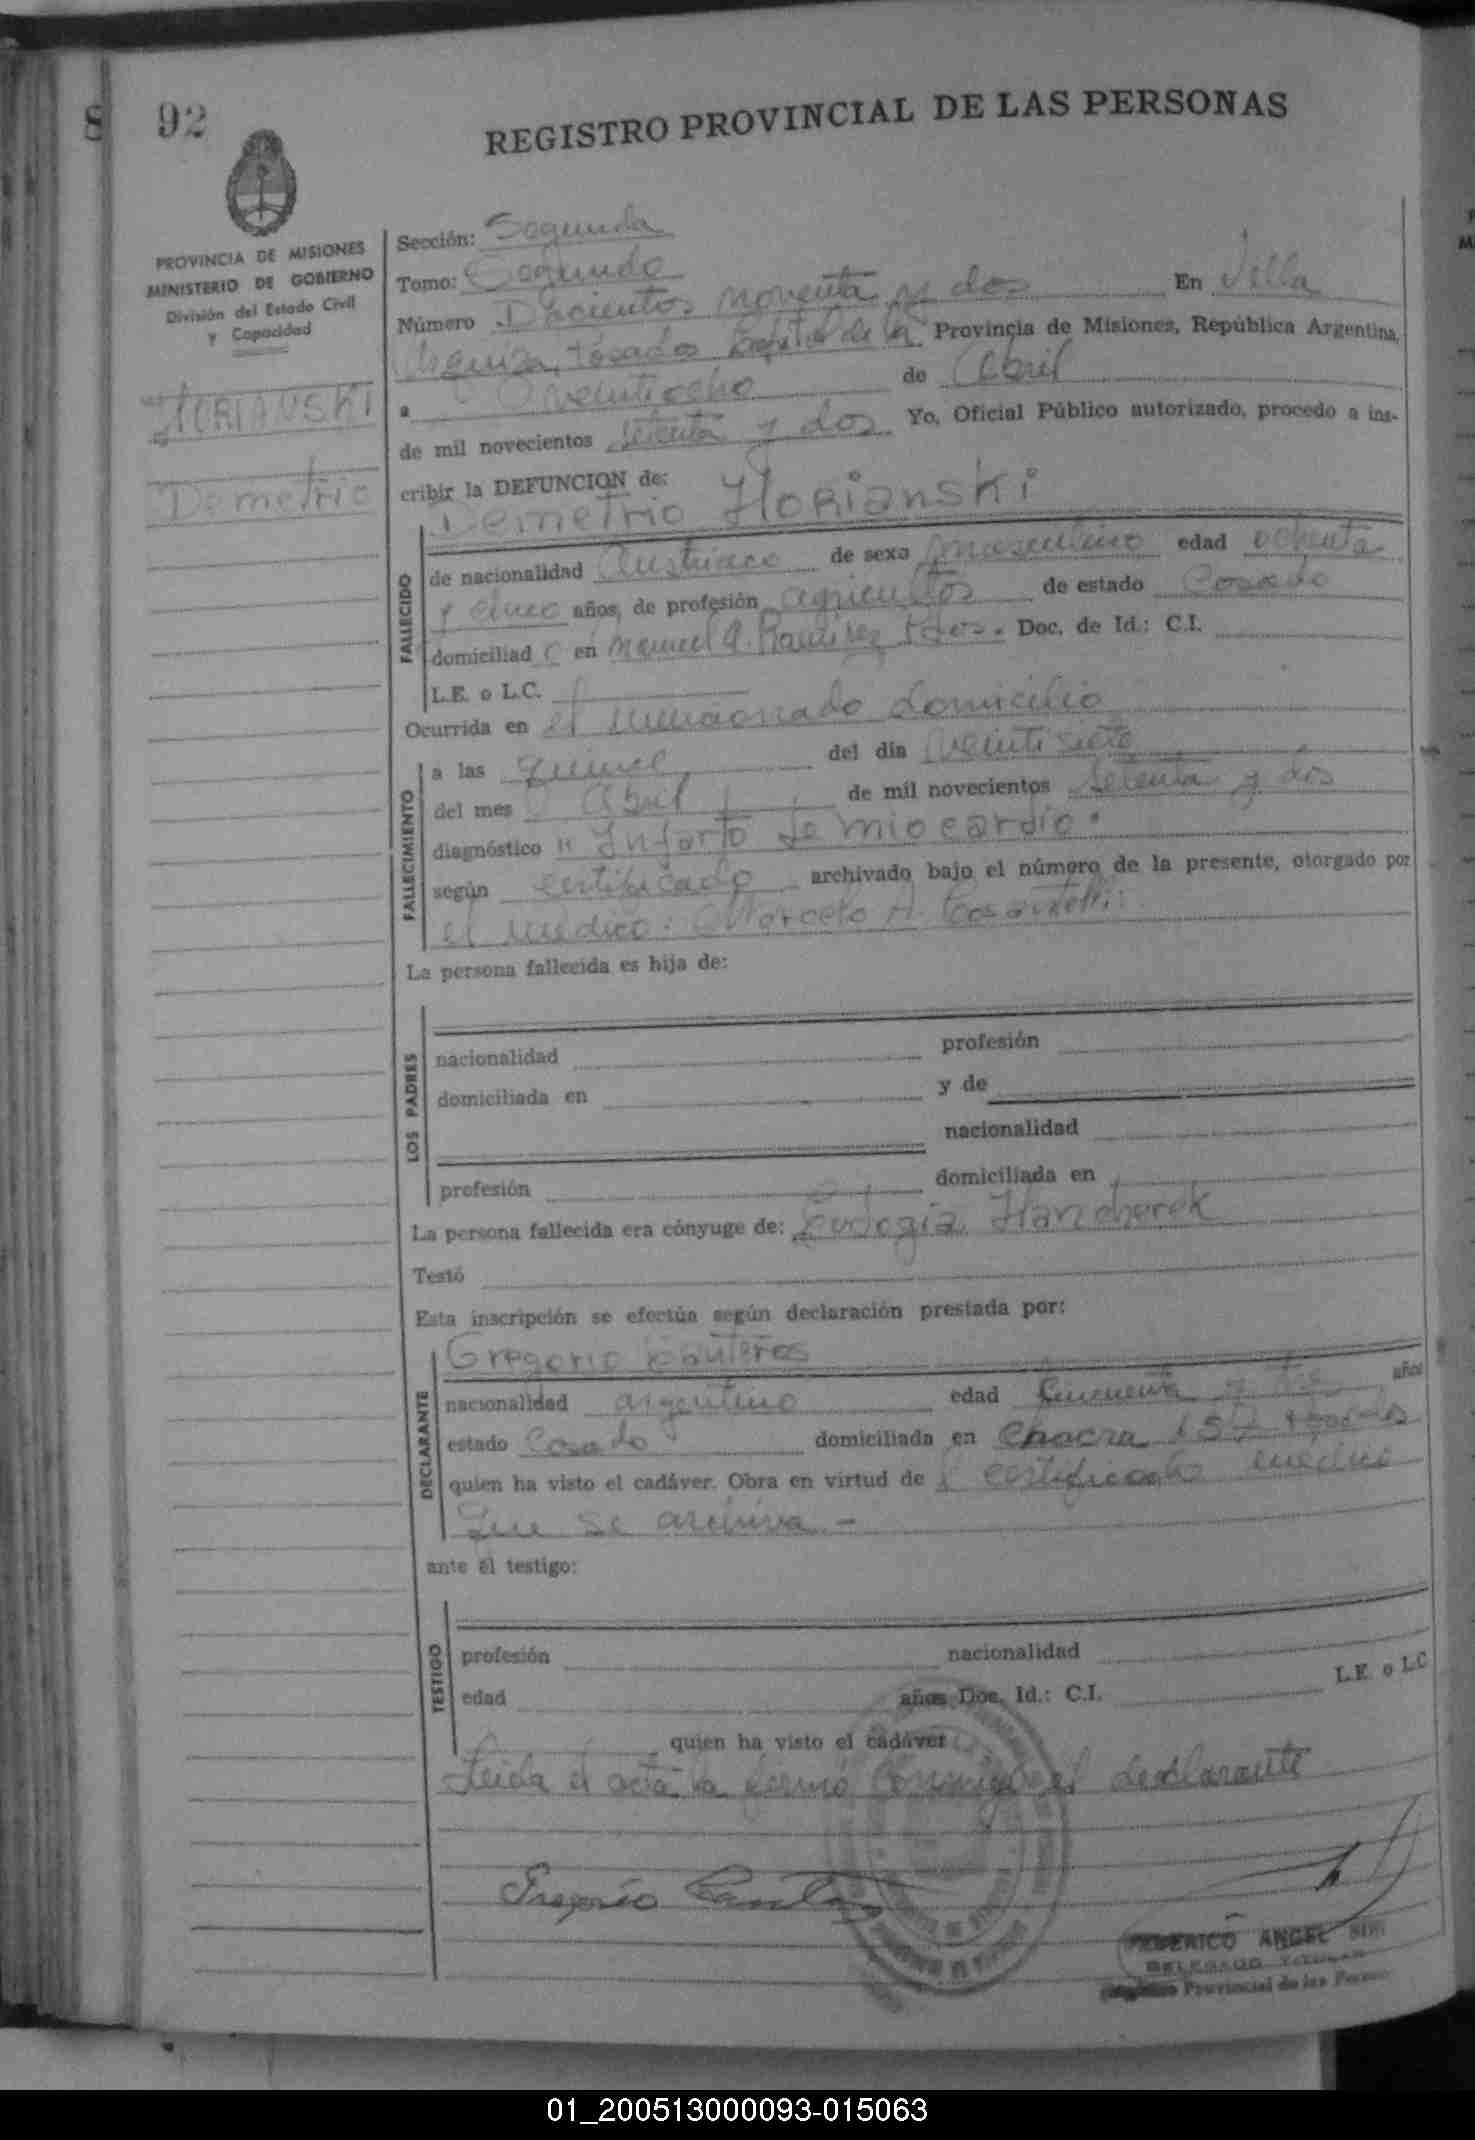 92
REGISTRO PROVINCIAL DE LAS PERSONAS
PROVINCIA DE MISIONES
MINISTERIO DE GOBIERNO
División del Estado Civil
y Capacidad
Demetrio
Sección: Segunda
Tomo: Segundo
Número Dscientos noventa y dos En Villa
Posadas Capital de la Provincia de Misiones, República Argentina,
a veintiocho de Abril
de mil novecientos setenta y dos Yo, Oficial Público autorizado, procedo a ins-
cribir la DEFUNCION de:
Demetrio Horianski
FALLECIDO
de nacionalidad Austriaco de sexo masculino edad ochenta
y cinco años, de profesión agricultor de estado Casado
domiciliad o en Manuel A. Ramirez Pdas. Doc. de Id.: C.I.
L.E. o L.C.
Ocurrida en el mencionado domicilio
FALLECIMIENTO
a las quince del día veintisiete
del mes Abril de mil novecientos setenta y dos
diagnóstico " Infarto de miocardio.
según certificado archivado bajo el número de la presente, otorgado por
el médico: Marcelo H.
La persona fallecida es hija de:
LOS PADRES
nacionalidad profesión
domiciliada en y de
nacionalidad
profesión domiciliada en
La persona fallecida era cónyuge de: Eulogia Hancherek
Testó
Esta inscripción se efectúa según declaración prestada por:
DECLARANTE
Gregorio
nacionalidad argentino edad Cincuenta y tres años
estado Casado domiciliada en Chacra 157 Posadas
quien ha visto el cadáver. Obra en virtud de l certificado médico
que se archiva -
ante el testigo:
TESTIGO
profesión nacionalidad
edad años Doc. Id.: C.I. L.E. o L.C
quien ha visto el cadáver
Leida el acta la firmó Conmigo el declarante
FEDERICO ANGEL
DELEGADO TITULAR
Provincial de las Person
01_200513000093-015063